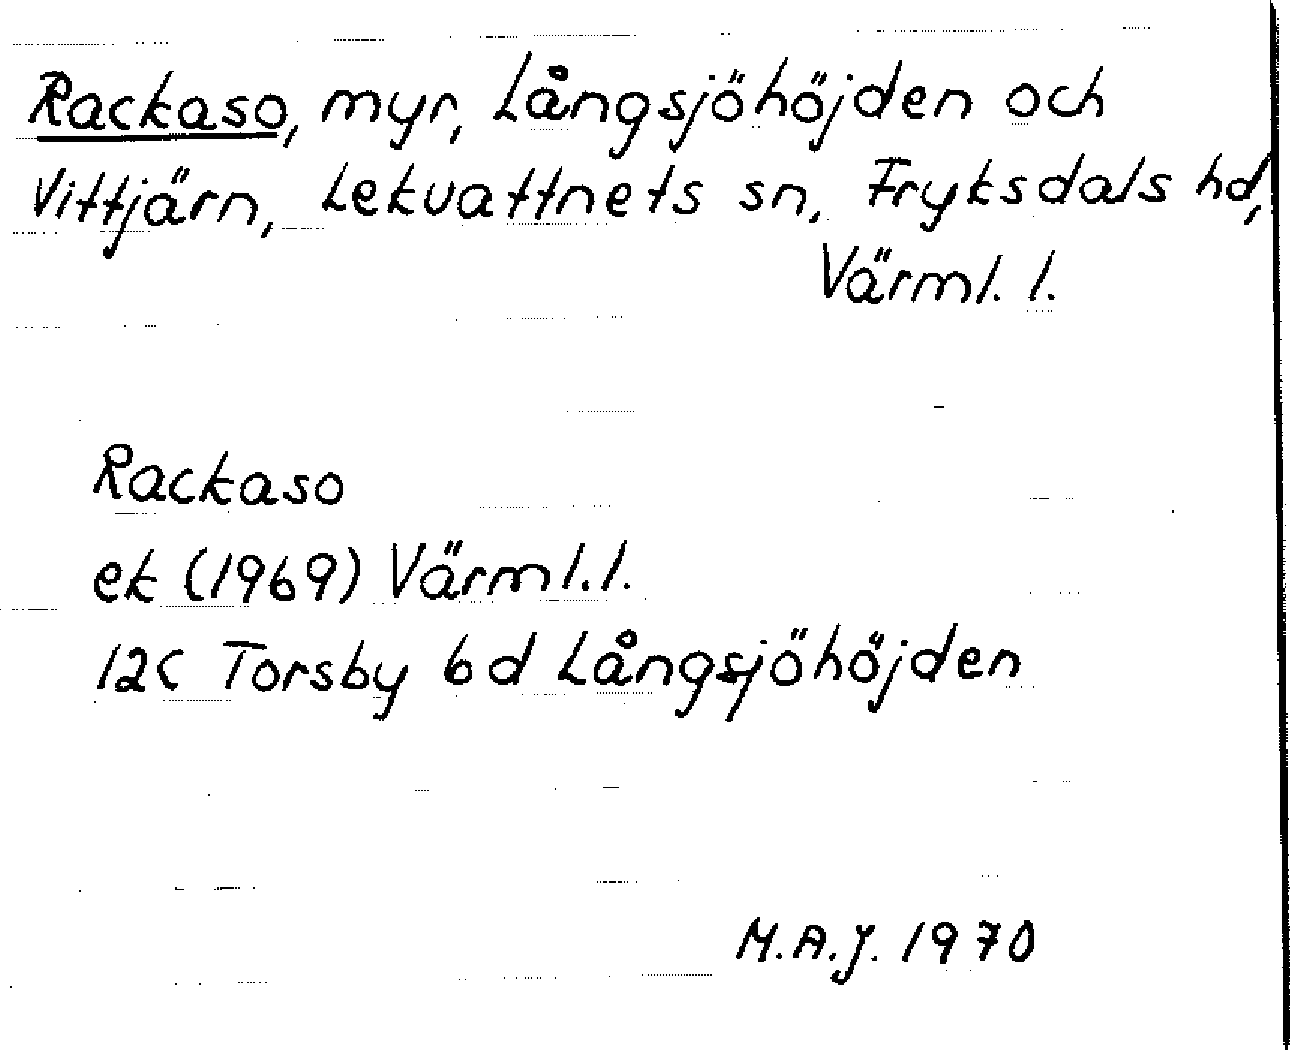 Rackaso, myr, Långsjöhöjden och
Vittjärn, Lekvattnets sn, Fryksdals hd,
Värml. l.
Rackaso
ek (1969) Värml. l.
12C Torsby 6d Långsjöhöjden
M.A.J. 1970